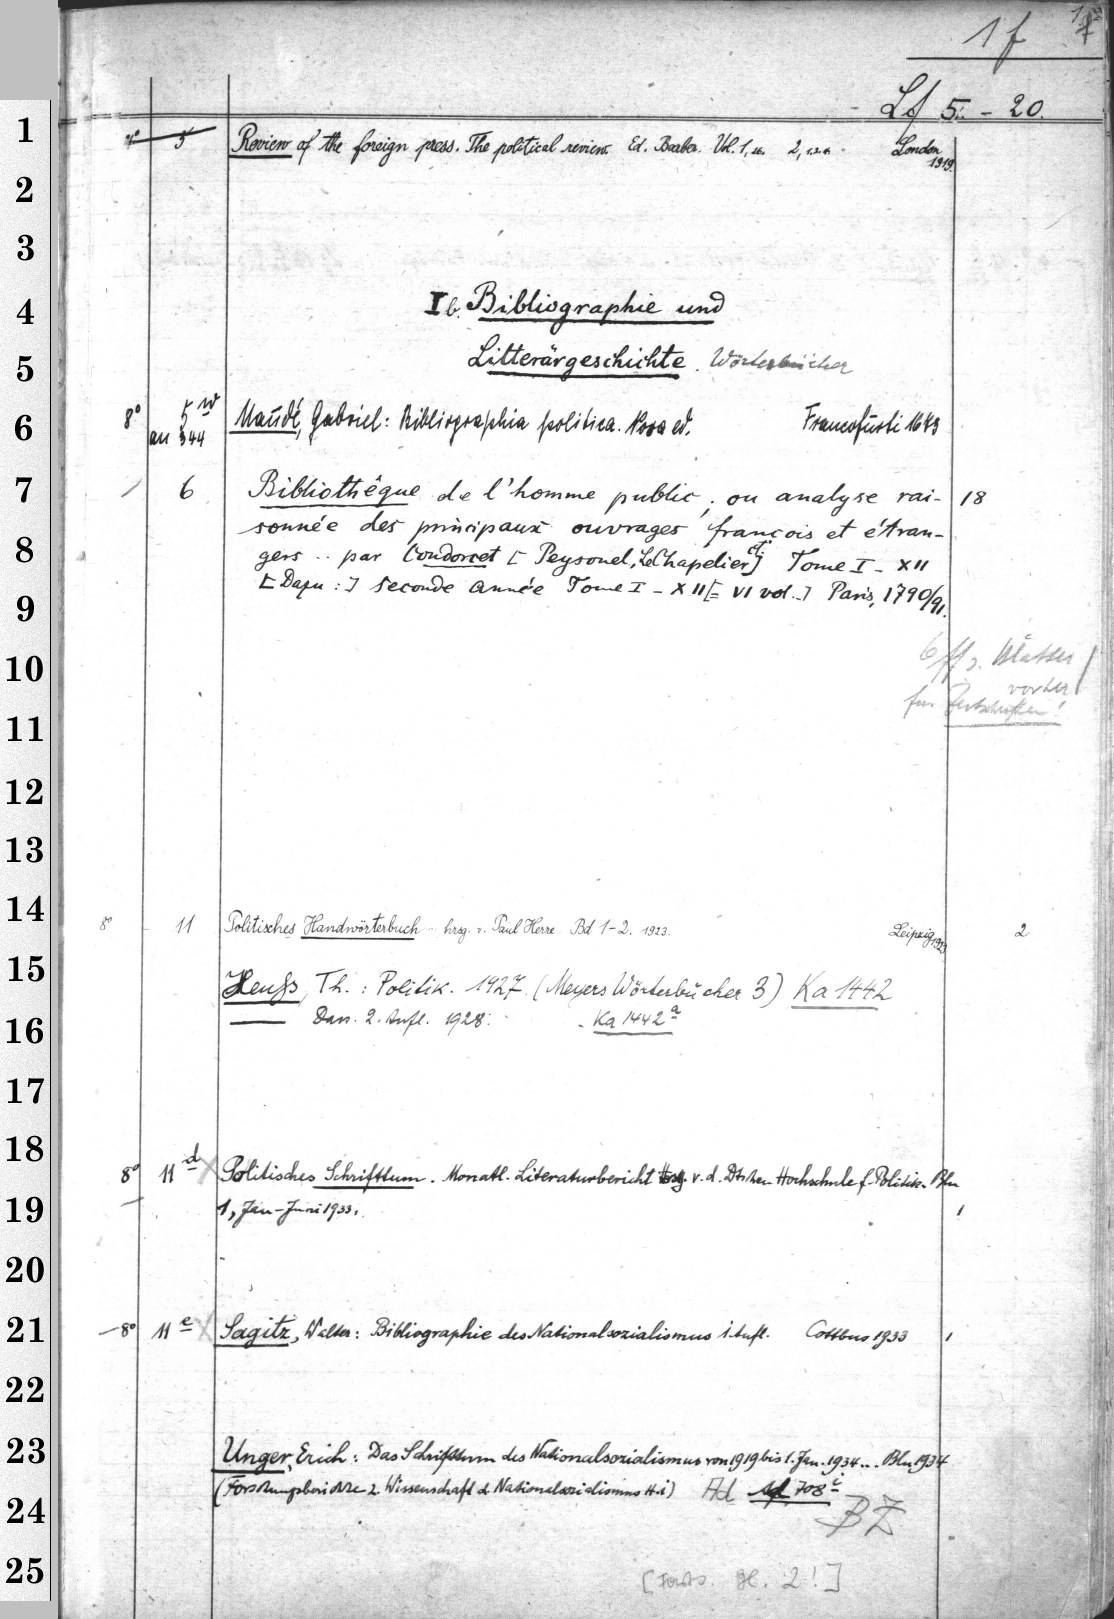 1f
Lf 5 - 20.
1
4° 5 Review of the foreign press. The political review. Ed. Vol. 1, 2, London 1919.
2
3
4 Ib. Bibliographie und
5 Litterärgeschichte. Wörterbücher
6 8° 5 w an 344 Naudé, Gabriel: Bibliographia politica. Nova ed. Francofurti 1673
7 6 Bibliothêque de l'homme public, ou analyse rai- 18
sonnée des principaux ouvrages françois et étran-
8 gers .. par Condorcet [Peysonel, Le Chapelier etc] Tome I - XII
9 [Dazu:] Seconde année Tome I - XII [= VI vol.] Paris, 1790/91.
10 6 ff s. Blätter
vorher
11 für Zeitschriften!
12
13
14 8° 11 Politisches Handwörterbuch hrsg. v. Paul Herre Bd 1-2. 1923. Leipzig 1923 2
15 Heuss, Th.: Politik. 1927. (Meyers Wörterbücher 3) Ka 1442
16 Dass. 2. Aufl. 1928. Ka 1442 a
17
18 8° 11 d Politisches Schrifttum. Monatl. Literaturbericht Hrsg. v. d. Dtschen Hochschule f. Politik. Bln
19 1, Jan-Juni 1933. 1
20
21 8° 11 e Sagitz, Walter: Bibliographie des Nationalsozialismus 1. Aufl. Cottbus 1933 1
22
23 Unger, Erich: Das Schrifttum des Nationalsozialismus von 1919 bis 1. Jan. 1934... Bln 1934
(Forschungsberichte z. Wissenschaft d Nationalsozialismus H. 1) Ad 708 i
24 BZ
25 [Forts. Bl. 2!]